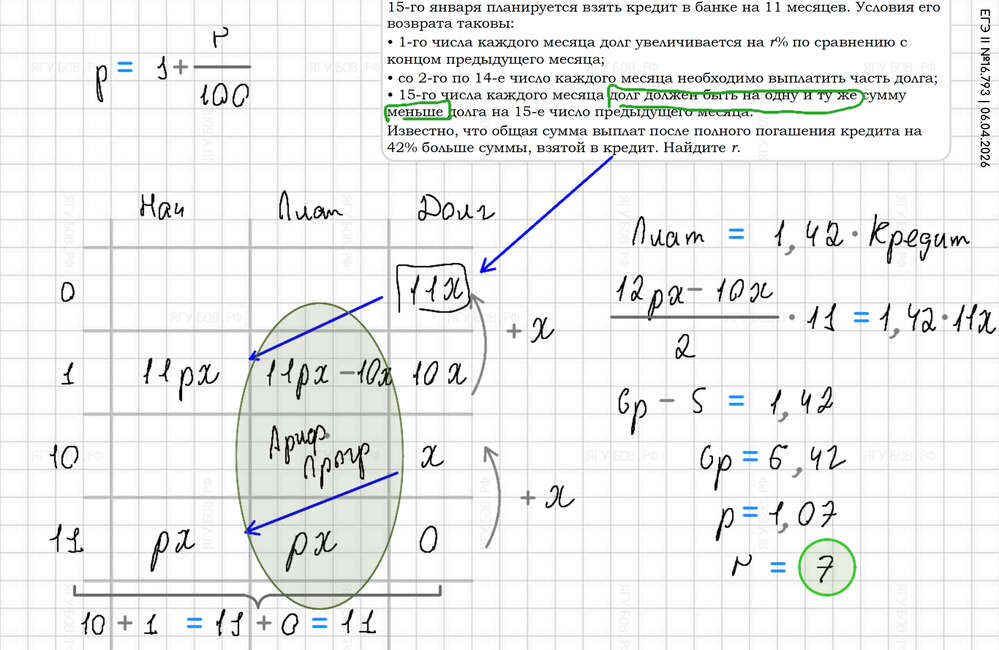 15-го января планируется взять кредит в банке на 11 месяцев. Условия его
возврата таковы:
• 1-го числа каждого месяца долг увеличивается на r% по сравнению с
концом предыдущего месяца;
• со 2-го по 14-е число каждого месяца необходимо выплатить часть долга;
• 15-го числа каждого месяца долг должен быть на одну и ту же сумму
меньше долга на 15-е число предыдущего месяца.
Известно, что общая сумма выплат после полного погашения кредита на
42% больше суммы, взятой в кредит. Найдите r.
ЕГЭ II №16.793 | 06.04.2026
p = 1 + r/100
Нач Плат Долг
0 11x
+ x
1 11px 11px - 10x 10x
10 Ариф. Прогр x
+ x
11 px px 0
10 + 1 = 11 + 0 = 11
Плат = 1,42 · Кредит
(12px - 10x)/2 · 11 = 1,42 · 11x
6p - 5 = 1,42
6p = 6,42
p = 1,07
r = 7